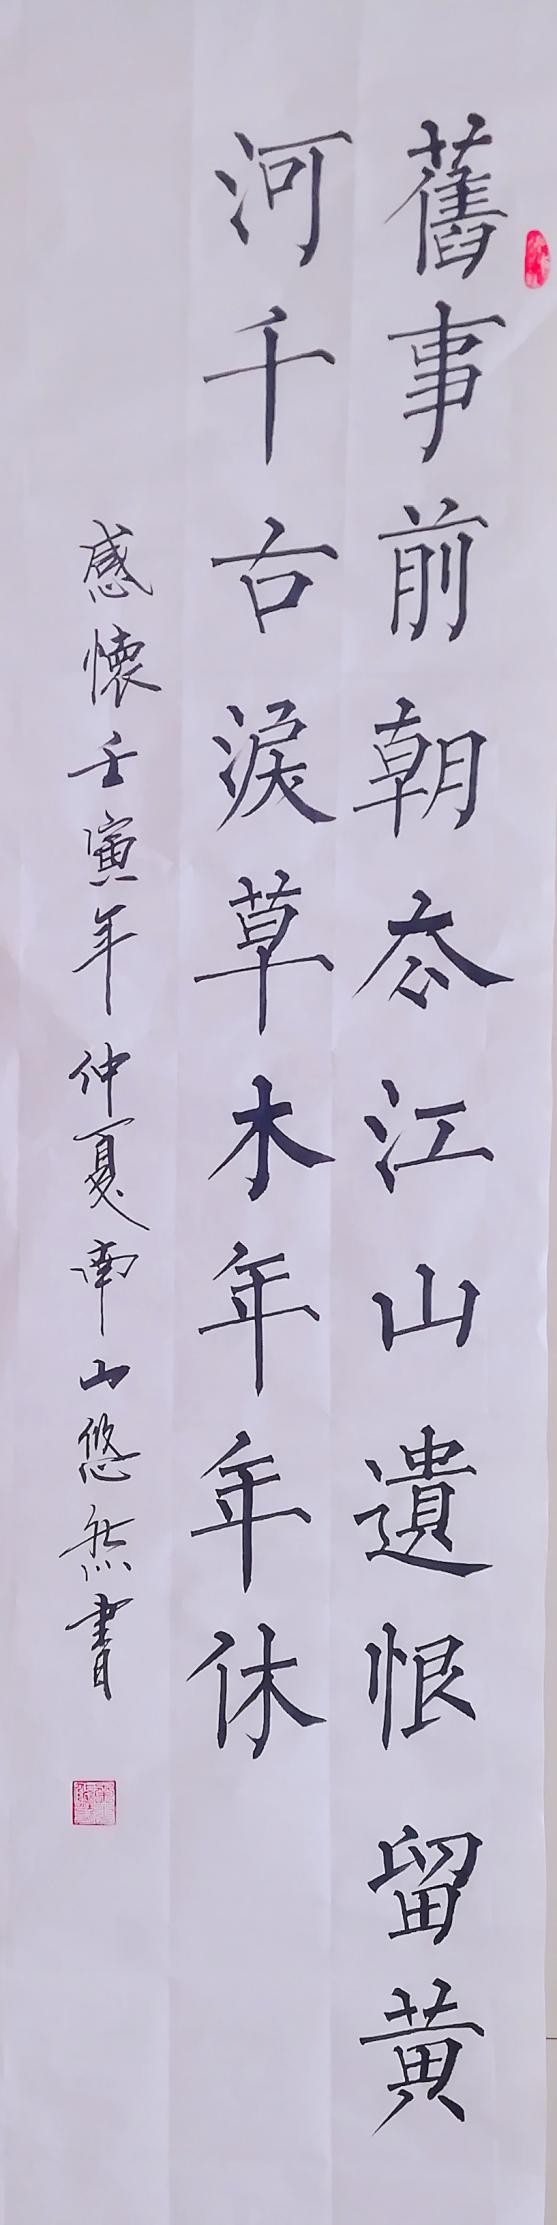 舊事前朝忝江山遺恨留黃
河千古淚草木年年休
感懷壬寅年仲夏南山悠然書